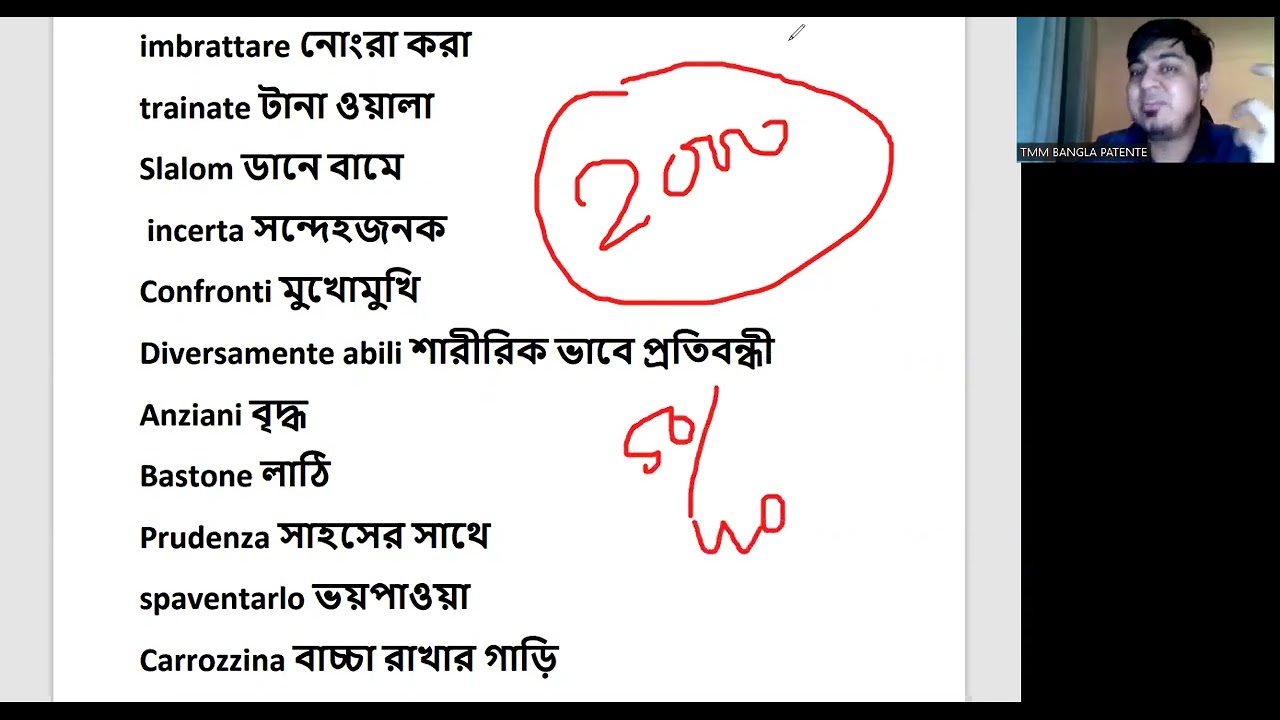 imbrattare নোংরা করা
trainate টানা ওয়ালা
Slalom ডানে বামে
incerta সন্দেহজনক
Confronti মুখোমুখি
Diversamente abili শারীরিক ভাবে প্রতিবন্ধী
Anziani বৃদ্ধ
Bastone লাঠি
Prudenza সাহসের সাথে
spaventarlo ভয়পাওয়া
Carrozzina বাচ্চা রাখার গাড়ি
TMM BANGLA PATENTE